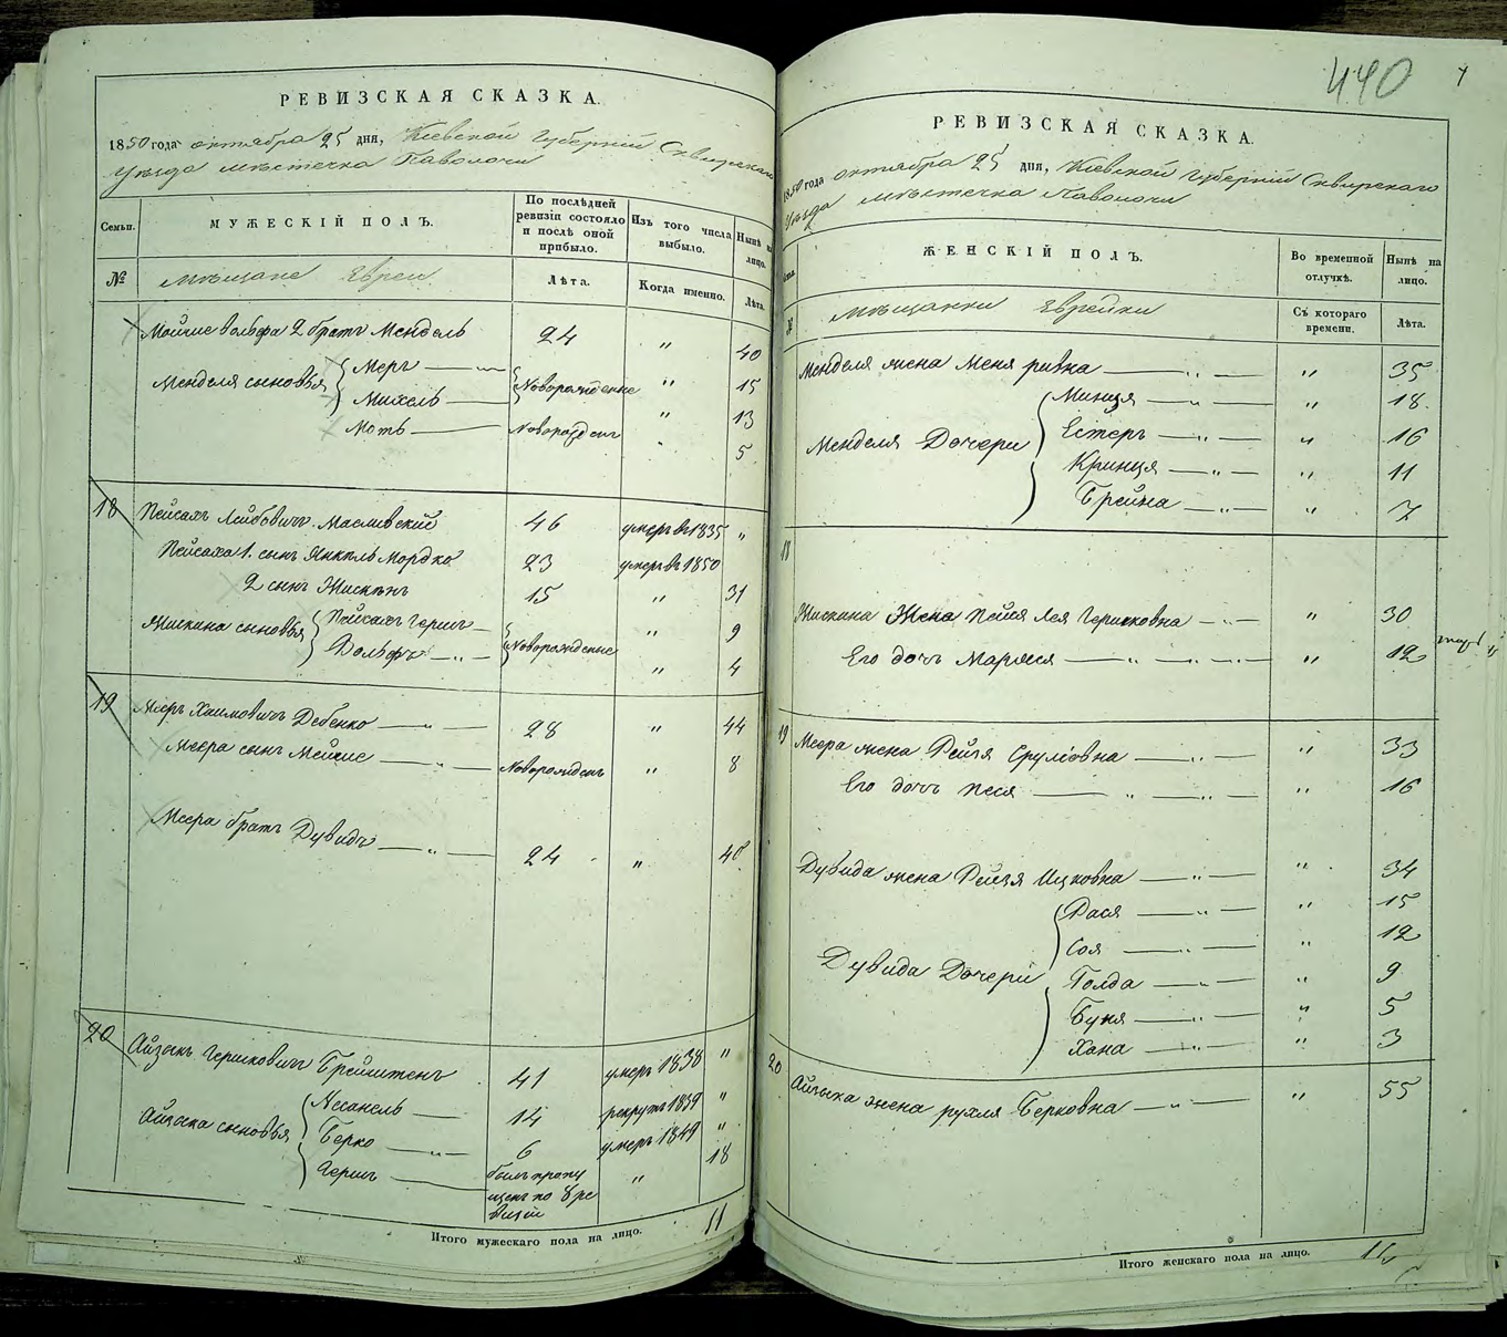 РЕВИЗСКАЯ СКАЗКА.
1850 года октября 25 дня, Кіевской Губерніи Сквирскаго
уѣзда мѣстечка Паволочи
Семьи.
МУЖЕСКІЙ ПОЛЪ.
По послѣдней ревизіи состояло и послѣ оной прибыло.
Изъ того числа выбыло.
Нынѣ на лицо.
№ мѣщане Евреи Лѣта. Когда именно. Лѣта.
Мошко Вольфа 2 братъ Мендель 24 " 40
Менделя сыновья Меръ — Новорожденные " 15
Михель — " 13
Моть — Новорожден " 5
18 Пейсахъ Лейбовичъ Масливский 46 умеръ въ 1835 "
Пейсаха 1. сынъ Янкель Мордко 23 умеръ въ 1850
2 сынъ Жискинъ 15 " 31
Жискина сыновья Пейсахъ Гершъ — Новорожденные " 9
Вольфъ — " — " 4
19 Меръ Хаимовичъ Дебенко — " — 28 " 44
Меера сынъ Мейше — " — Новорожденъ " 8
Меера братъ Дувидъ — " — 24 " 40
20 Айзикъ Гершковичъ Брейштенъ 41 умеръ 1838 "
Айзика сыновья Несанель — 14 рекрутъ 1839 "
Берко — " — 6 умеръ 1849 "
Гершъ — былъ пропу " 18
щенъ по 8 ре
визіи
Итого мужескаго пола на лицо. 11
440
РЕВИЗСКАЯ СКАЗКА.
1850 года октября 25 дня, Кіевской Губерніи Сквирскаго
уѣзда мѣстечка Паволочи
ЖЕНСКІЙ ПОЛЪ.
Во временной отлучкѣ.
Нынѣ на лицо.
№ мѣщанки Еврейки Съ котораго времени. Лѣта.
Менделя жена Меня ривка — " — " 35
Менделя Дочери Минця — " — " 18
Естеръ — " — " 16
Кринця — " — " 11
Брейна — " — " 7
18
Жискина Жена Пейся Лея Гершковна — " — " 30
Его дочь Марьяся — " — " — " 12
19 Меера жена Рейзя Сруліовна — " — " 33
Его дочь Песя — " — " — " 16
Дувида жена Рейзя Ицковна — " — " 34
Дувида Дочери Рася — " — " 15
Соя — " — " 12
Голда — " — " 9
Буня — " — " 5
Хана — " — " 3
20 Айзика жена рухля Берковна — " — " 55
Итого женскаго пола на лицо.